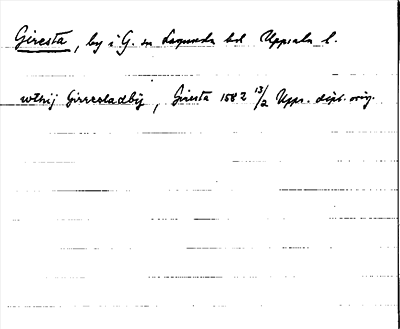 Giresta, by i G. sn Lagunda hd Uppsala l.
vthij Girrestadbÿ, Giresta 1582 13/2 Upps. dipl. orig.